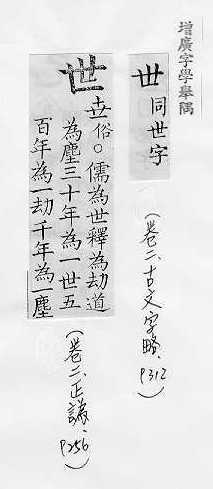 增廣字學舉隅
丗同世字
(卷二、古文字略、P312)
世
卋俗○儒為世釋為劫道
為塵三十年為一世五
百年為一劫千年為一塵
(卷二、正譌、P256)